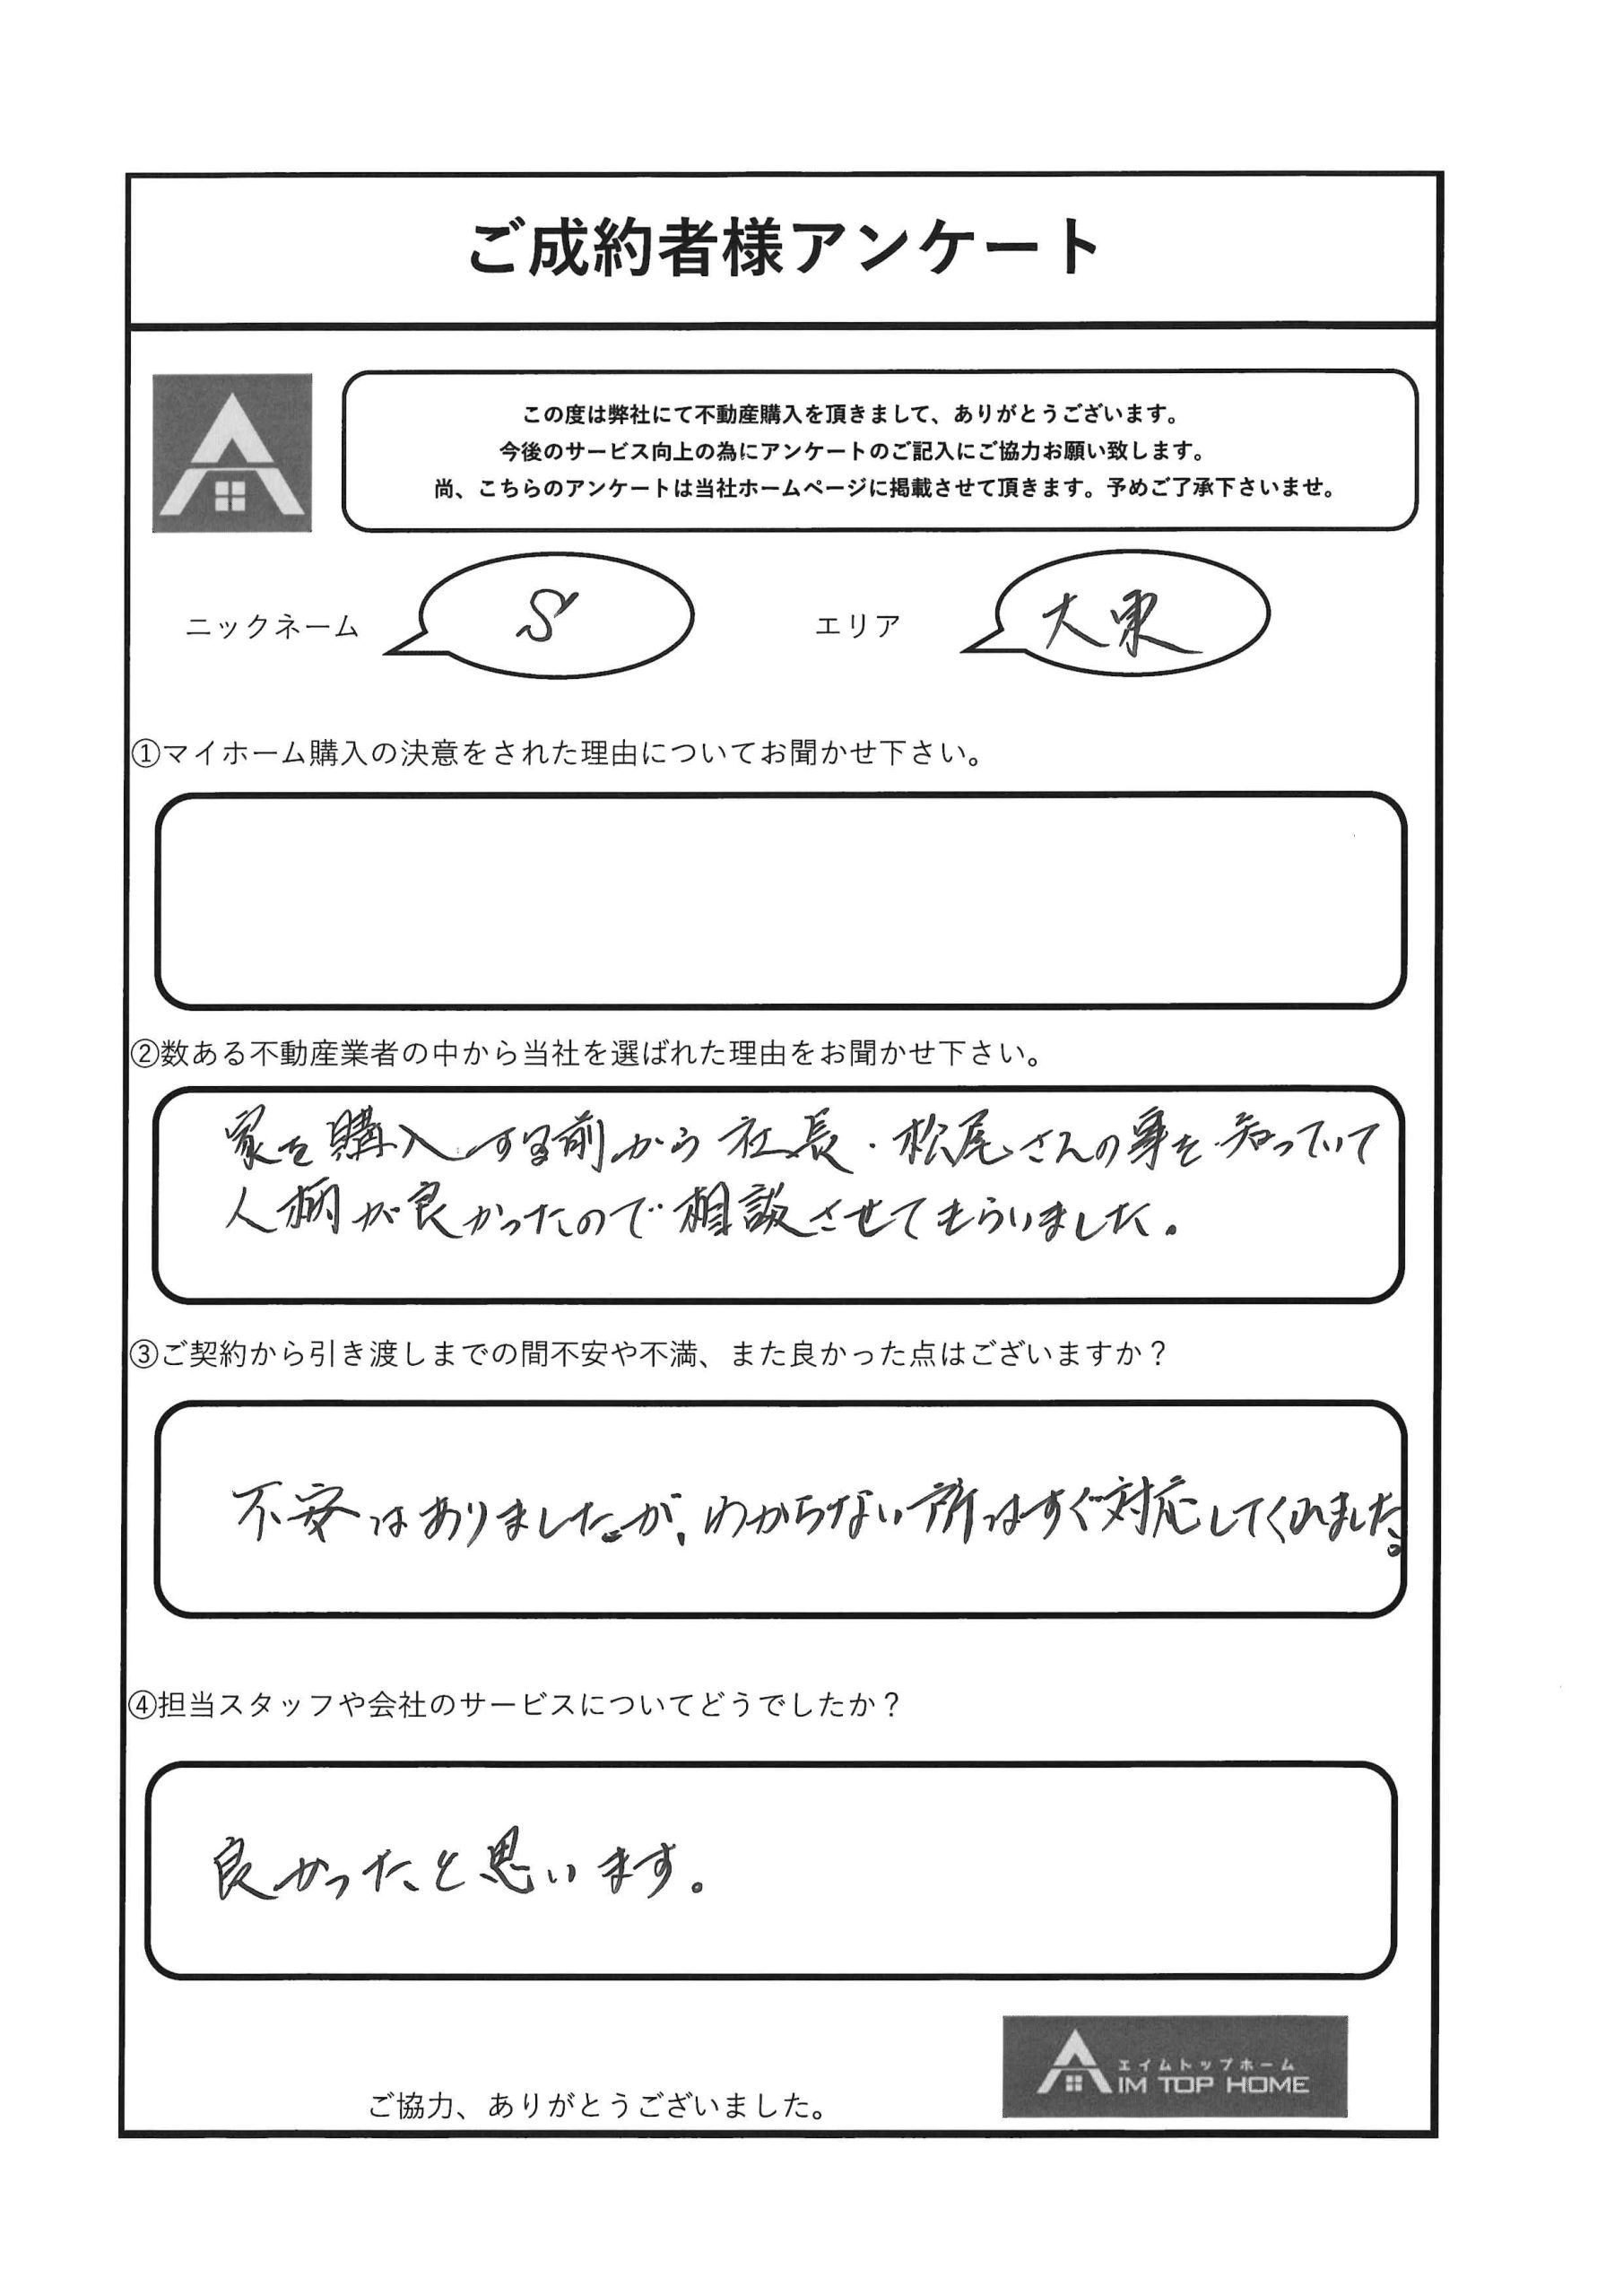 ご成約者様アンケート
この度は弊社にて不動産購入を頂きまして、ありがとうございます。
今後のサービス向上の為にアンケートのご記入にご協力お願い致します。
尚、こちらのアンケートは当社ホームページに掲載させて頂きます。予めご了承下さいませ。
ニックネーム S エリア 大東
①マイホーム購入の決意をされた理由についてお聞かせ下さい。
②数ある不動産業者の中から当社を選ばれた理由をお聞かせ下さい。
家を購入する前から社長・松尾さんの事を知っていて
人柄が良かったので相談させてもらいました。
③ご契約から引き渡しまでの間不安や不満、また良かった点はございますか？
不安はありましたが、わからない所はすぐ対応してくれました。
④担当スタッフや会社のサービスについてどうでしたか？
良かったと思います。
エイムトップホーム
AIM TOP HOME
ご協力、ありがとうございました。